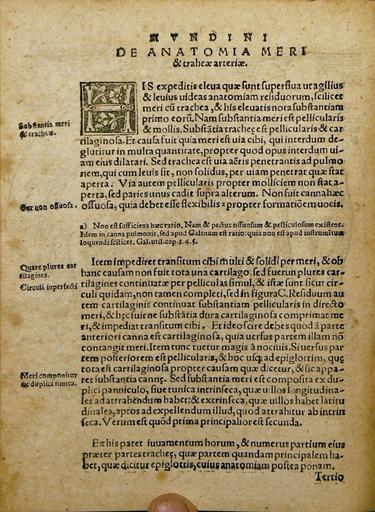 MVNDINI
DE ANATOMIA MERI
& traheæ arteriæ.
HIS expeditis eleua quæ sunt superflua ut agilius
& leuius uideas anatomiam residuorum, scilicet
meri cū trachea, & his eleuatis nota substantiam
primo eorū. Nam substantia meri est pellicularis
& mollis. Substātia tracheę est pellicularis & car
tilaginosa. Et causa fuit quia meri est uia cibi, qui interdum de-
glutitur in multa quantitate, propter quod opus interdum ui-
am eius dilatari. Sed trachea est uia aëris penetrantis ad pulmo
nem, qui cum leuis sit, non solidus, per uiam penetrat quæ stat
aperta. Via autem pellicularis propter molliciem non stat a-
perta, sed paries unus cadit supra alterum. Non fuit canna hæc
ossuosa, quia debet esse flexibilis propter formationē uocis.
Substantia meri
& tracheæ.
Cur non ossuosa.
a) Non est sufficiens hæc ratio, Nam & pectus ossuosum & flexiculosum existens.
Idem in canna pulmonis, sed apud Galenum est ratio: quia non est apud instrumētum
loquendi scilicet. Gal. util. cap. 3. 4. 5.
Quare plures car
tilagines.
Circuli inperfecti
Item impediret transitum cibi multi & solidi per meri, & ob
hanc causam non fuit tota una cartilago. sed fuerunt plures car-
tilagines continuatæ per pelliculas simul, & istæ sunt sicut cir-
culi quidam, non tamen completi, sed in figura C. Residuum au
tem cartilaginis continuat substantiam pellicularis in directo
meri, & hęc fuit ne substātia dura cartilaginosa comprimat me
ri, & impediat transitum cibi. Et ideo scire debes quod à parte
anteriori canna est cartilaginosa, quia uersus partem illam nō
contangit meri. Item tunc tuetur magis à nociuis. Si uersus par
tem posteriorem est pellicularis, & hoc usq; ad epiglottim, quę
tota est cartilaginosa propter causam quæ dicetur, & sic appa-
ret substantia cannę. Sed substantia meri est composita ex du-
plici panniculo, siue tunica intrinseca, quæ uillos longitudina-
les ad attrahendum habet: & extrinseca, quæ uillos habet latitu
dinales, aptos ad expellendum illud, quod attrahitur ab intrin
seca. Verum est quòd prima principalior est secunda.
Meri componitur
ex duplici tunica.
Ex his patet iuuamentum horum, & numerus partium eius
præter partes tracheę, quæ partem quandam principalem ha-
bet, quæ dicitur epiglottis, cuius anatomiam postea ponam.
Tertio